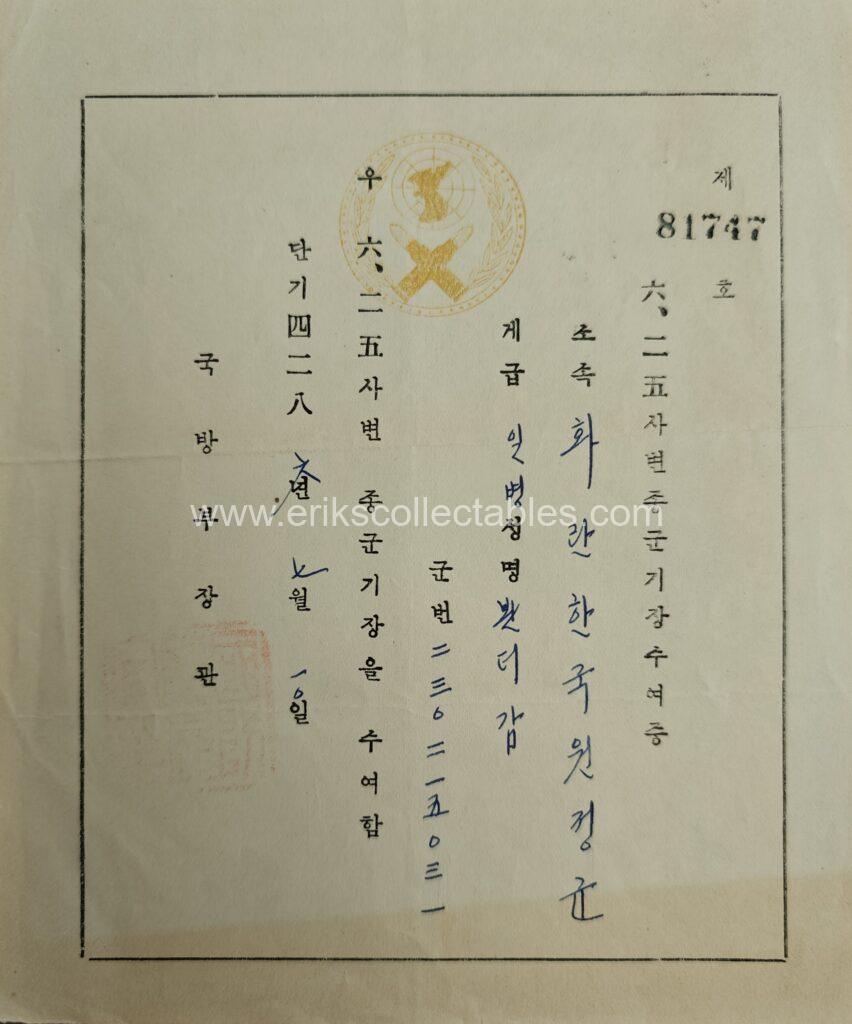 제 81747 호
六、二五사변종군기장수여증
소속 화란한국원정군
게급 일병 성명
군번 二三〇二一五〇三一
우 六、二五사변 종군기장을 수여함
단기四二八六년 七월 一〇일
국방부장관
www.erikscollectables.com